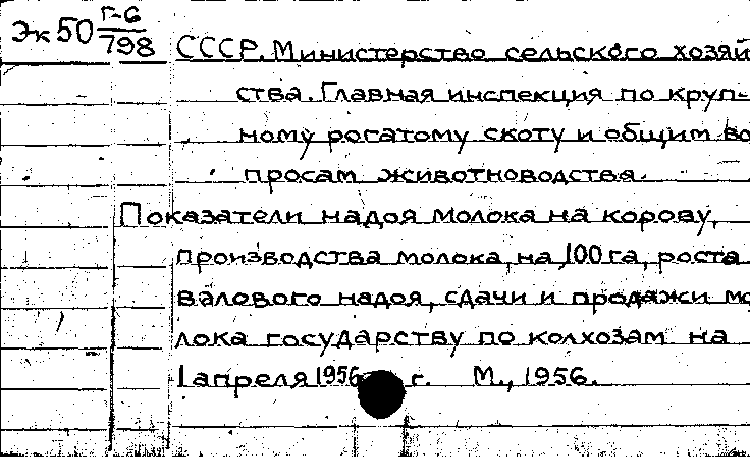 Эк50 Г-6/798
СССР. Министерство сельского хозяй
ства. Главная инспекция по круп-
ному рогатому скоту и общим во
просам животноводства.
Показатели надоя молока на корову,
производства молока, на 100 га, роста
валового надоя, сдачи и продажи мо
лока государству по колхозам на
1 апреля 1956 г. М., 1956.